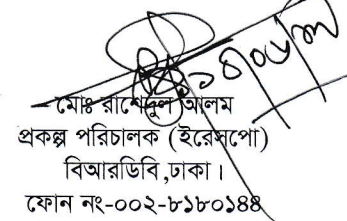 মোঃ রাশেদুল আলম
প্রকল্প পরিচালক (ইরেসপো)
বিআরডিবি,ঢাকা।
ফোন নং-০০২-৮১৮০১৪৪